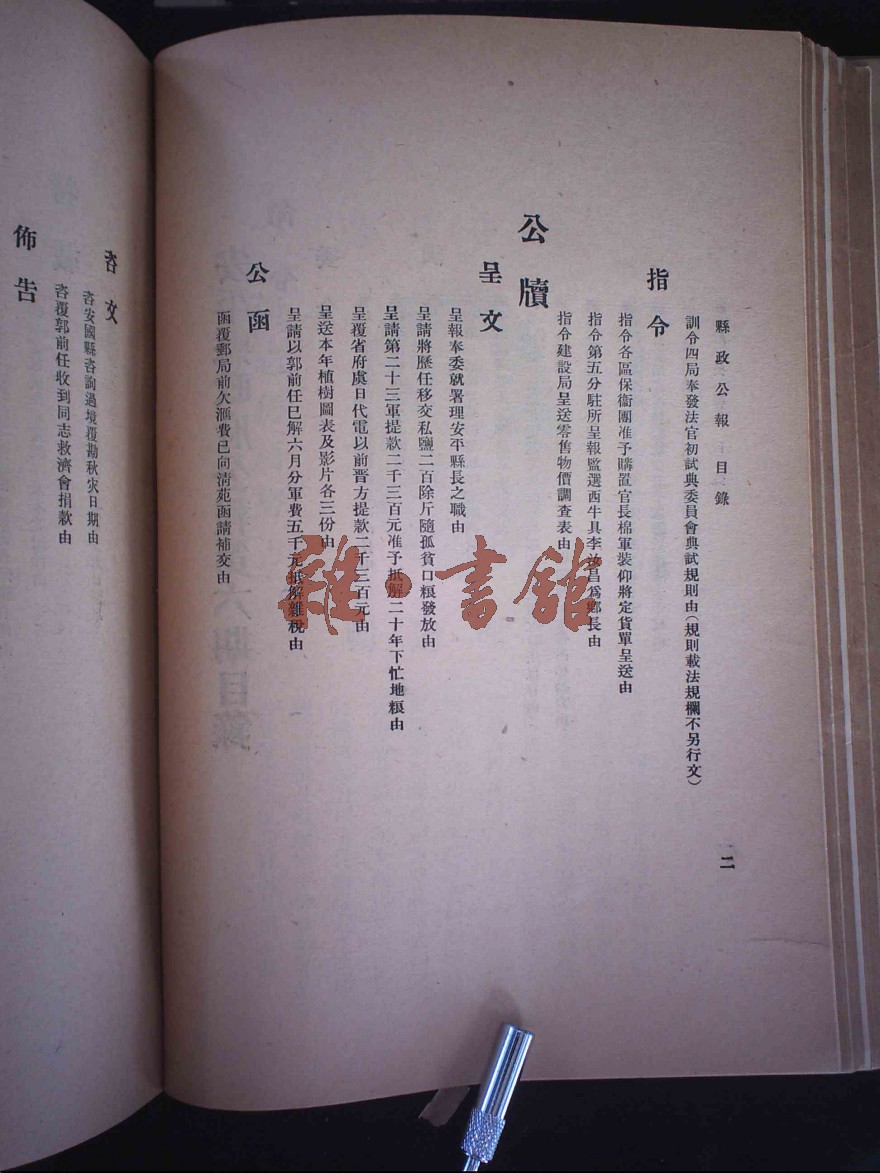 縣政公報 目錄
二
訓令四局奉發法官初試典委員會典試規則由(規則載法規欄不另行文)
指令
指令各區保衞團准予購置官長棉軍裝仰將定貨單呈送由
指令第五分駐所呈報監選西牛具李汝昌爲鄉長由
指令建設局呈送零售物價調查表由
公牘
呈文
呈報奉委就署理安平縣長之職由
呈請將歷任移交私鹽二百除斤隨孤貧口粮發放由
呈請第二十三軍提款二千三百元准予抵解二十年下忙地粮由
呈覆省府虞日代電以前晋方提款二千三百元由
呈送本年植樹圖表及影片各三份由
呈請以郭前任巳解六月分軍費五千元抵解雜稅由
公函
函覆郵局前欠滙費已向淸苑函請補交由
咨文
咨安國縣咨詢過境覆勘秋灾日期由
咨覆郭前任收到同志救濟會捐款由
佈告
雜·書館